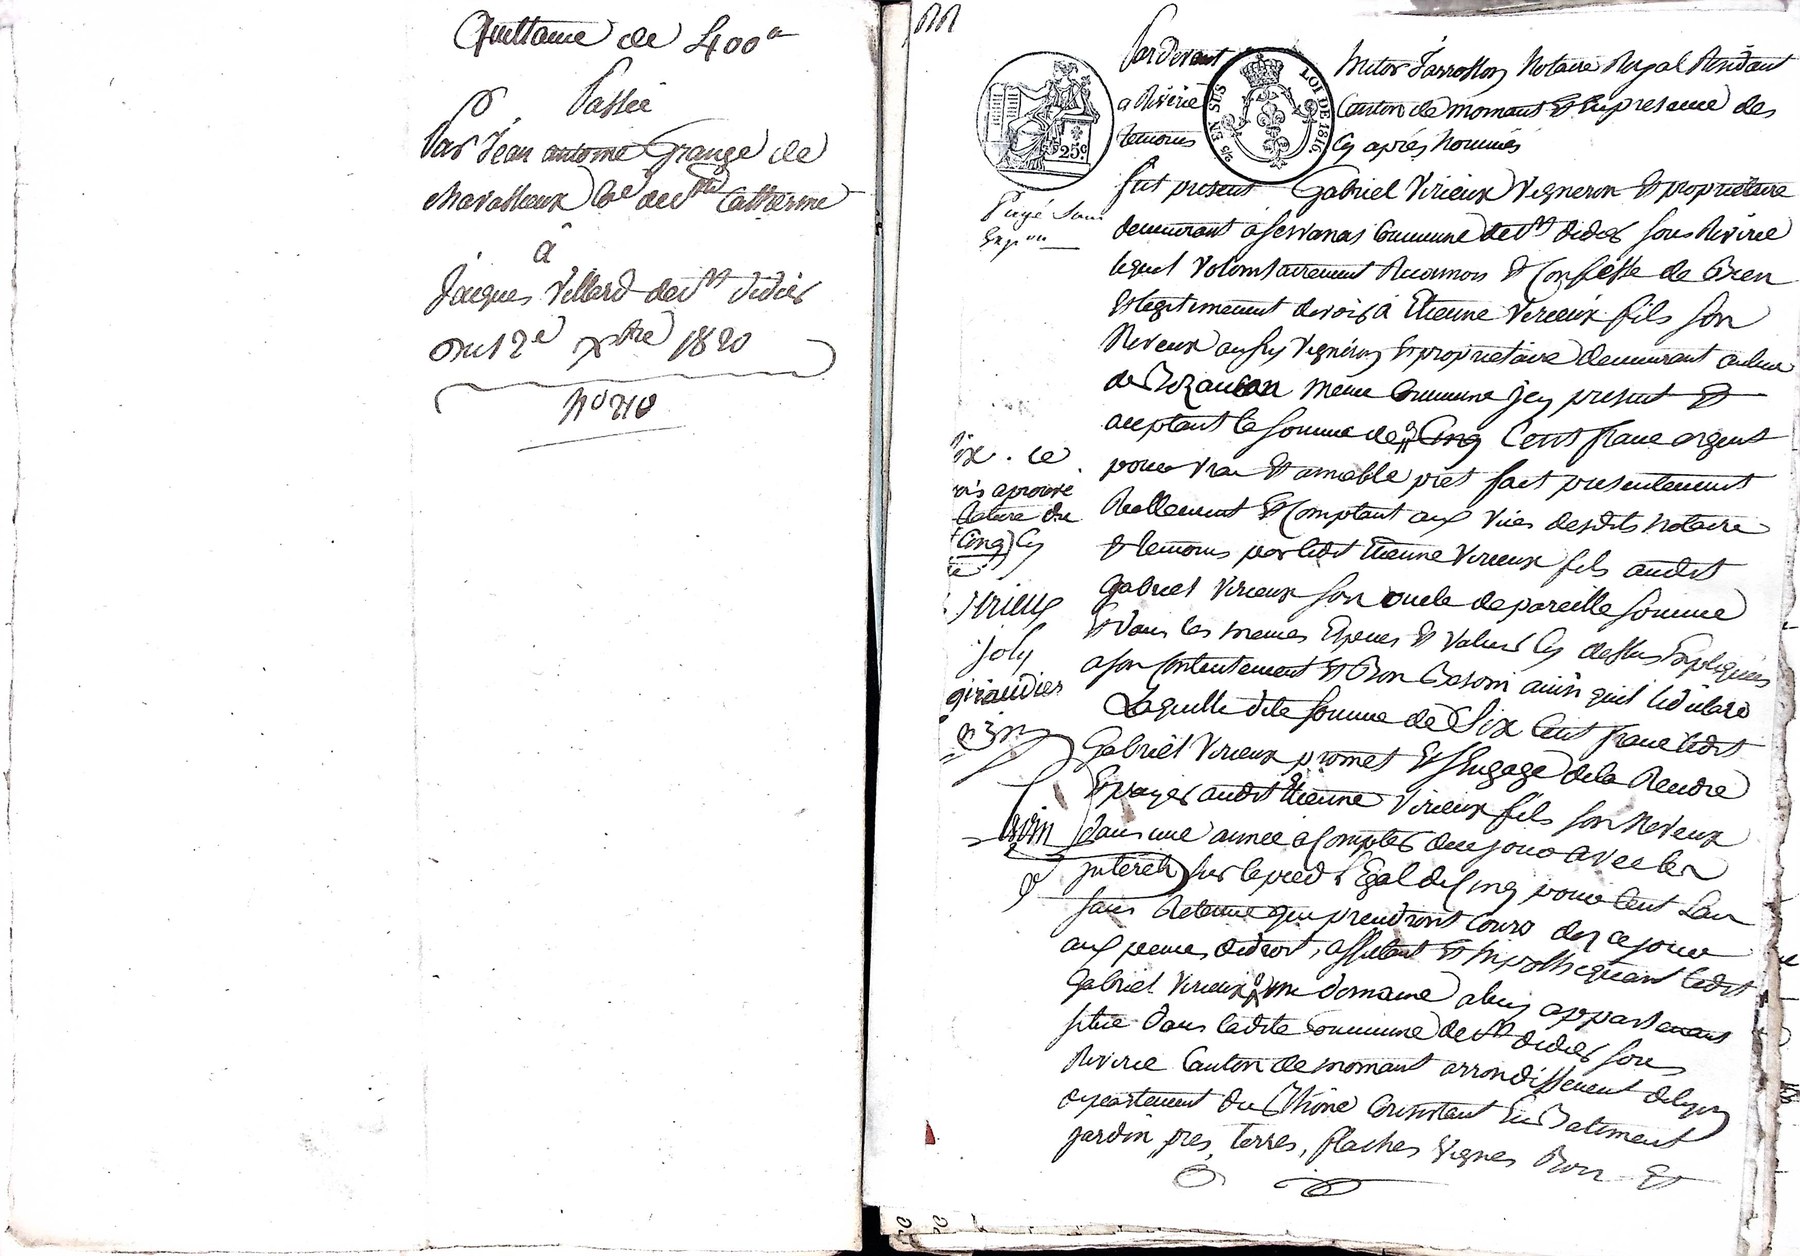 Quittance de 400 a
Passée
Par Jean antoine Grange de
chavasseux Cne de Ste Catherine
à
Jacques Villard de St didier
Du 12e xbre 1820
No 210
Pardevant Notaire Royal Résidant
a Riverie Canton de mornant Et En presence des
temoins Cy après Nommés
25c
EN SUS
LOI DE 1816
fut present Gabriel Virieux Vigneron Et proprietaire
demeurant a Commune de St didier sous Riverie
lequel Volontairement Reconnois Et Confesse de Bien
Et legitimement devoir à Etienne Virieux fils son
Neveux aussy Vigneron Et proprietaire demeurant au lieu
de meme Commune Jcy present Et
aceptant la somme de Cinq Cent franc argent
pour vrai Et amiable pret fait presentement
Reellement Et Comptant aux Vües desdits Notaire
Et temoins par ledit Etienne Virieux fils audit
Gabriel Virieux son oncle de pareille somme
Et dans les memes Especes Et Valeurs Cy dessus Expliquées
a son Contentement Et Bon Besoin ainsi quil le déclare
Laquelle dite somme de Six Cent franc ledit
Gabriel Virieux promet Et s'Engage de la Rendre
Et payer audit Etienne Virieux fils son Neveux
dans une année à Compter de ce jour avec les
jnterets sur le pied Egal de Cinq pour Cent L'an
sans Retenue qui prendront Cours dez ce jour
aux peines de droit, affectant Et hypothequant ledit
Gabriel Virieux un domaine a luy appartenant
situé dans ladite Commune de St didier sous
Riverie Canton de mornant arrondissement de Lyon
departement du Rhône Consistant En Batiment
jardin, pres, terres, flaches Vignes Bois Et
six . ce
aprouvé
Rature du
(Cinq) Cy
Virieux
Joly
giraudier